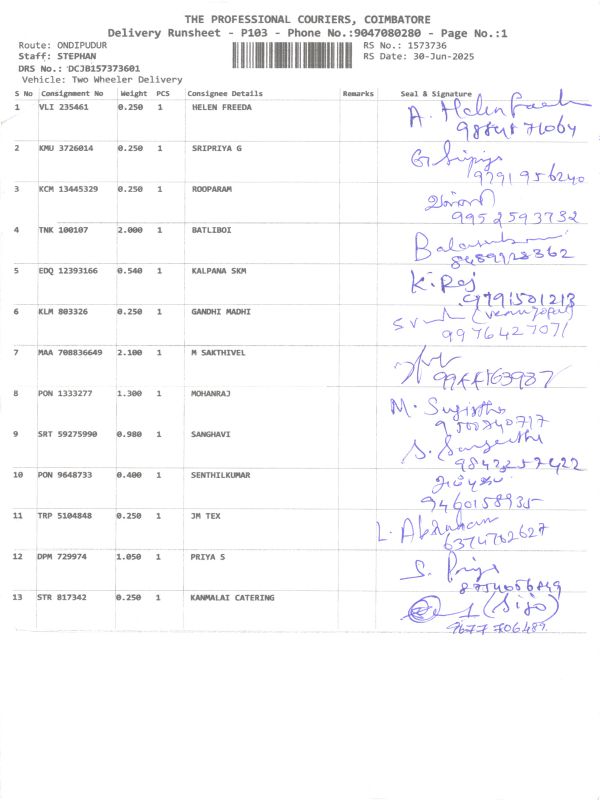 THE PROFESSIONAL COURIERS, COIMBATORE
Delivery Runsheet - P103 - Phone No.:9047080280 - Page No.:1
Route: ONDIPUDUR RS No.: 1573736
Staff: STEPHAN RS Date: 30-Jun-2025
DRS No.: DCJB157373601
Vehicle: Two Wheeler Delivery
S No Consignment No Weight PCS Consignee Details Remarks Seal & Signature
1 VLI 235461 0.250 1 HELEN FREEDA A. Helen
2 KMU 3726014 0.250 1 SRIPRIYA G G. Sripriya
9791956240
3 KCM 13445329 0.250 1 ROOPARAM
9952593732
4 TNK 100107 2.000 1 BATLIBOI
5 EDQ 12393166 0.540 1 KALPANA SKM K. Raj
9791501213
6 KLM 803326 0.250 1 GANDHI MADHI (venugopal)
9976427071
7 MAA 708836649 2.100 1 M SAKTHIVEL
9944163987
8 PON 1333277 1.300 1 MOHANRAJ M.
9500740717
9 SRT 59275990 0.980 1 SANGHAVI S.
9843257422
10 PON 9648733 0.400 1 SENTHILKUMAR
9460158935
11 TRP 5104848 0.250 1 JM TEX L. Abraham
6374762627
12 DPM 729974 1.050 1 PRIYA S S. Priya
13 STR 817342 0.250 1 KANMALAI CATERING (Sijo)
9677706489